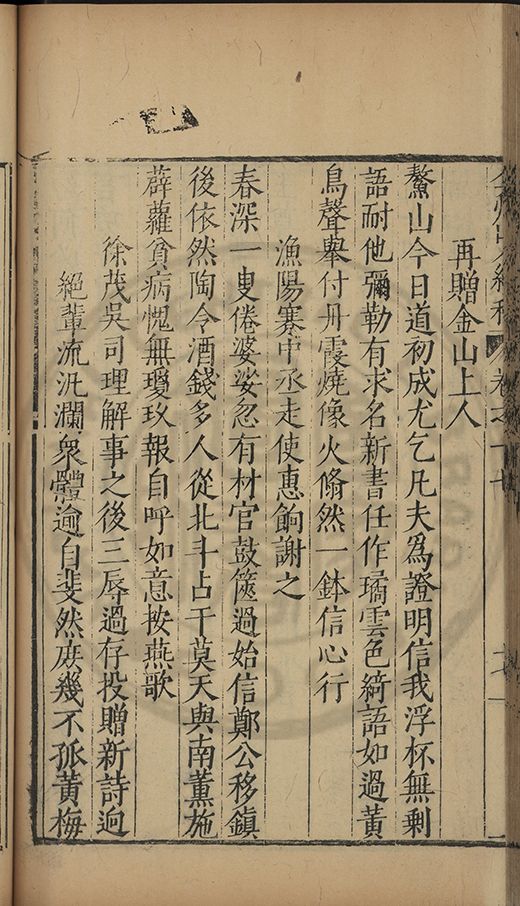 再贈金山上人
鰲山今日道初成尤乞凡夫為證明信我浮杯無剩
語耐他彌勒有求名新書任作璚雲色綺語如過黃
鳥聲舉付丹霞燒像火翛然一鉢信心行
漁陽蹇中丞走使惠餉謝之
春深一叟倦婆娑忽有村官鼓篋過始信鄭公移鎮
後依然陶令酒錢多人從北斗占干莫天與南薰施
薜蘿貧病愧無瓊玖報自呼如意按燕歌
徐茂吳司理解事之後三辱過存投贈新詩逈
絕輩流汎瀾衆體逾自斐然庶幾不孤黃梅